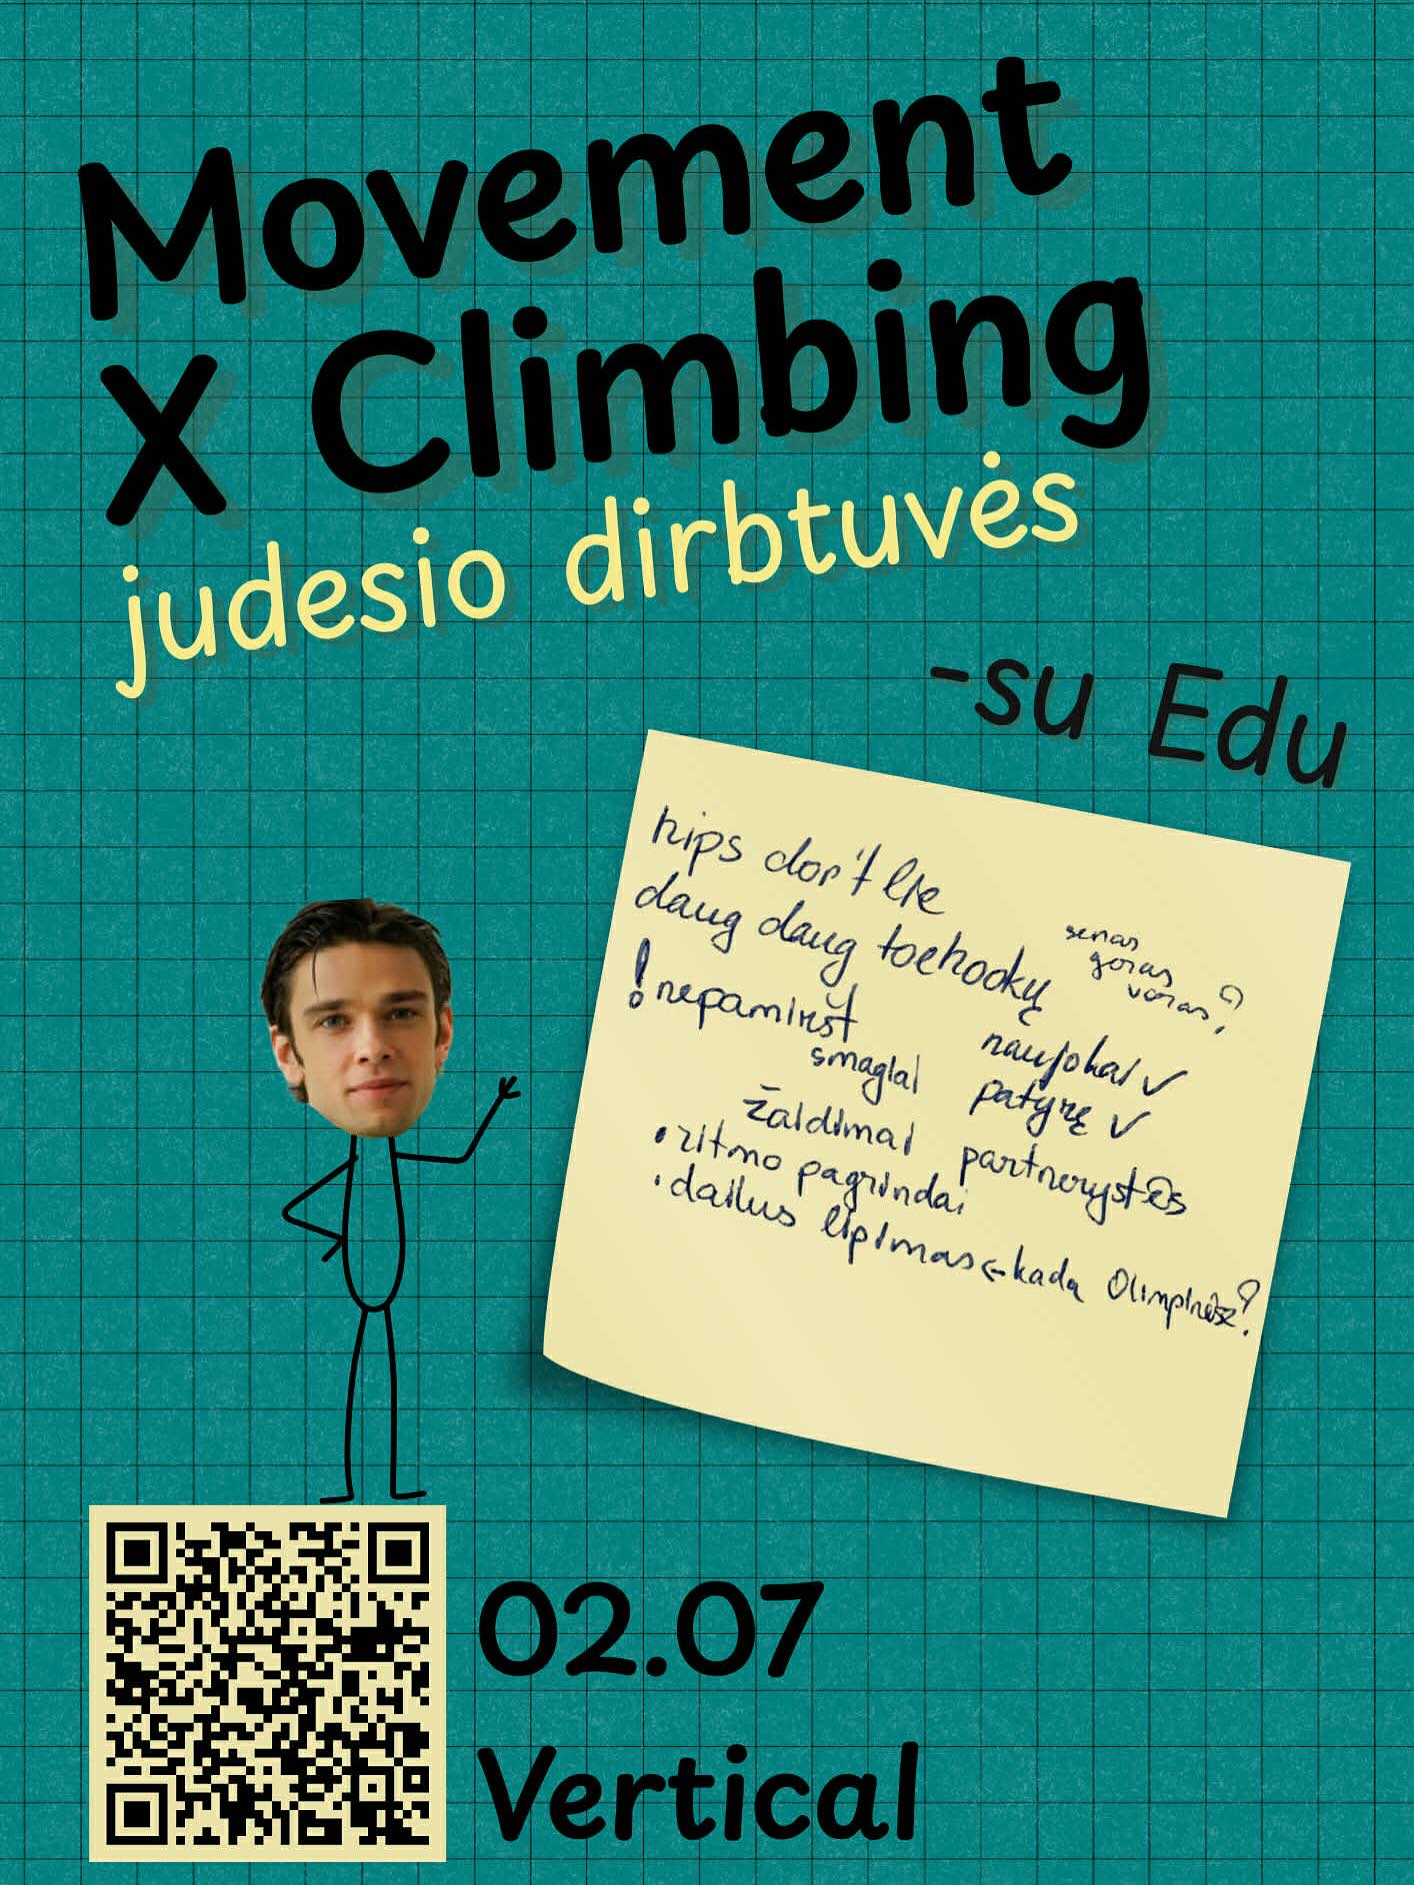 Movement
X Climbing
judesio dirbtuvės
-su Edu
hips don't lie
daug daug toehookų
senas
goras
voras?
! nepamiršt
smagiai
naujokai ✓
patyrę ✓
žaidimai partnerystės
• ritmo pagrindai
• dailus lipimas ← kada Olimpinės?
02.07
Vertical